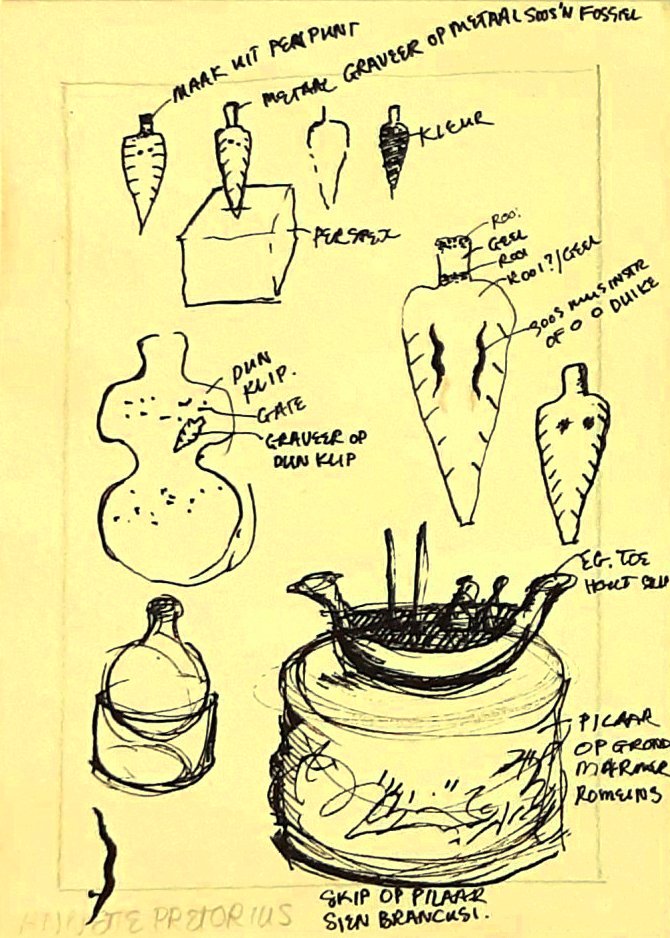 MAAK UIT PERSPUNT
METAAL GRAVEER OP METAAL SOOS 'N FOSSIEL
KLEUR
PERSPEX
ROOI
GEEL
ROOI
ROOI?/GEEL
SOOS MUSINSTR
OF O O DUIKE
DUN
KLIP.
GATE
GRAVEER OP
DUN KLIP
EG. TOE
HOUT
PILAAR
OP GROND
MARMER
ROMEINS
SKIP OP PILAAR
SIEN BRANCUSI.
PRETORIUS